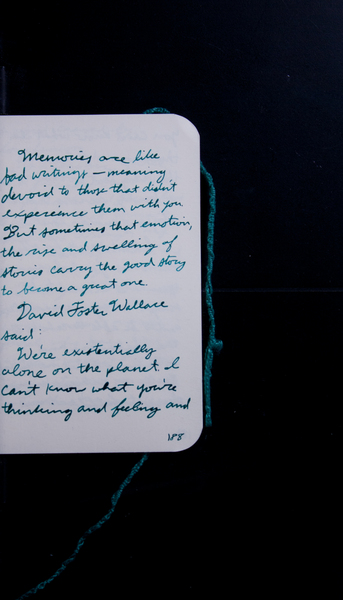 Memories are like
bad writings — meaning
devoid to those that didn't
experience them with you.
But sometimes that emotion,
the rise and swelling of
stories carry the good story
to become a great one.
David Foster Wallace
said:
We're existentially
alone on the planet. I
can't know what you're
thinking and feeling and
188